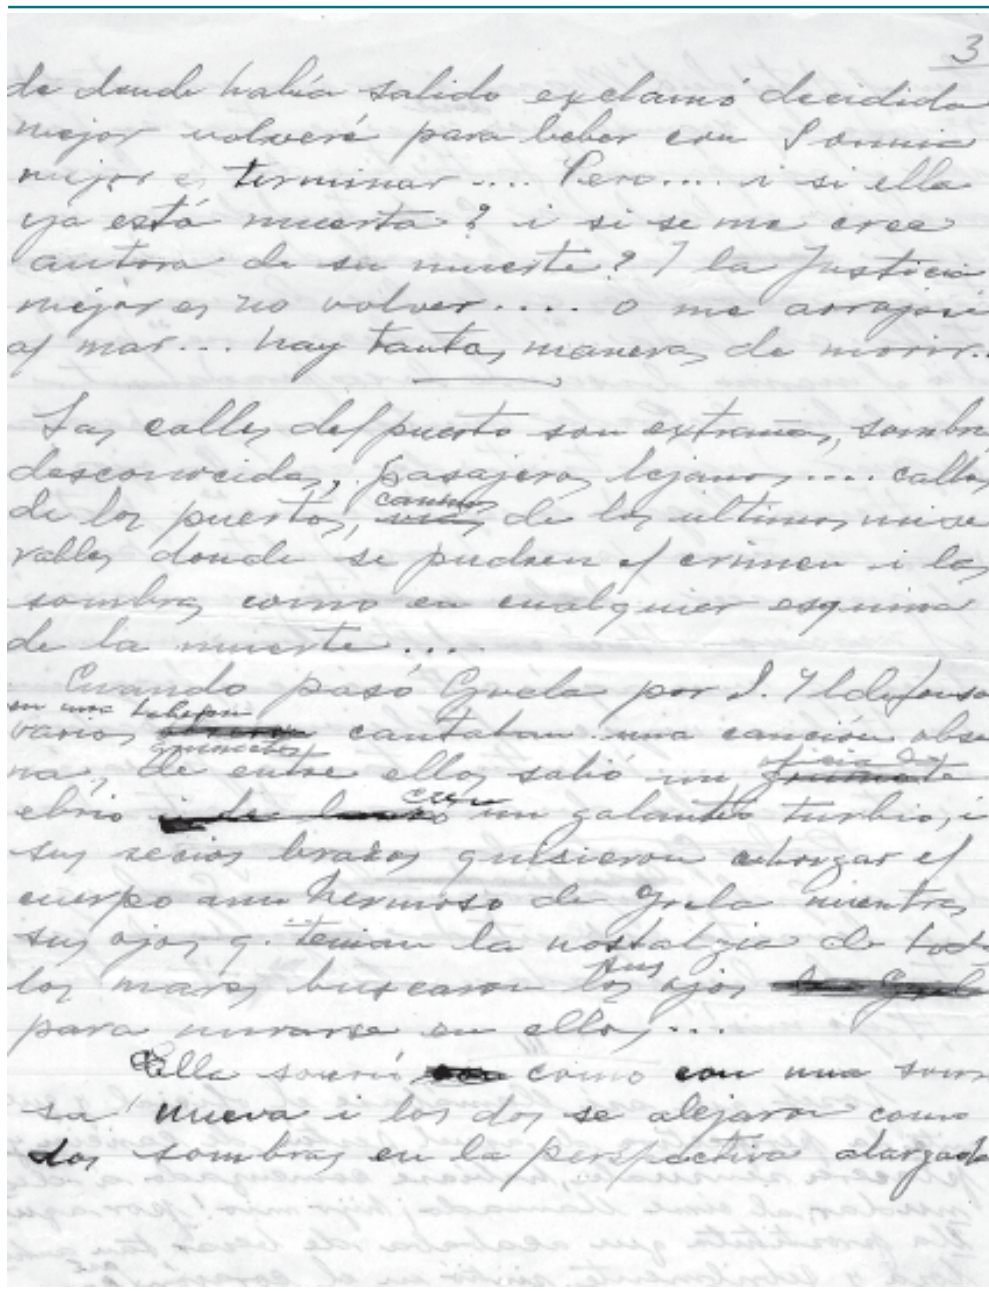 3
de donde había salido exclamó decidida
mejor volveré para beber con Sonnia
mejor es terminar .... Pero .... i si ella
ya está muerta? i si se me cree
autora de su muerte? I la Justicia
mejor es no volver .... o me arrojaré
al mar... hay tantas maneras de morir..
Las calles del puerto son extrañas, sombra
desconocidas, pasajeros lejanos .... calles
caminos
de los puertos, de los ultimos mise
rables donde se pudren el crimen i las
sombras como en cualquier esquina
de la muerte ....
Cuando pasó Grela por S. Yldefonso
en una
varios cantaban una canción obse
grumetes
na, de entre ellos salió un
ebrio con un galanteo turbio, i
sus recios brazos quisieron ahorzar el
cuerpo aun hermoso de Grela mientras
sus ojos q. tenian la nostalgia de tod
los mares buscaron sus ojos
para mirarse en ellos ...
Ella sonrió como con una sonri
sa nueva i los dos se alejaron como
dos sombras en la perspectiva alargada